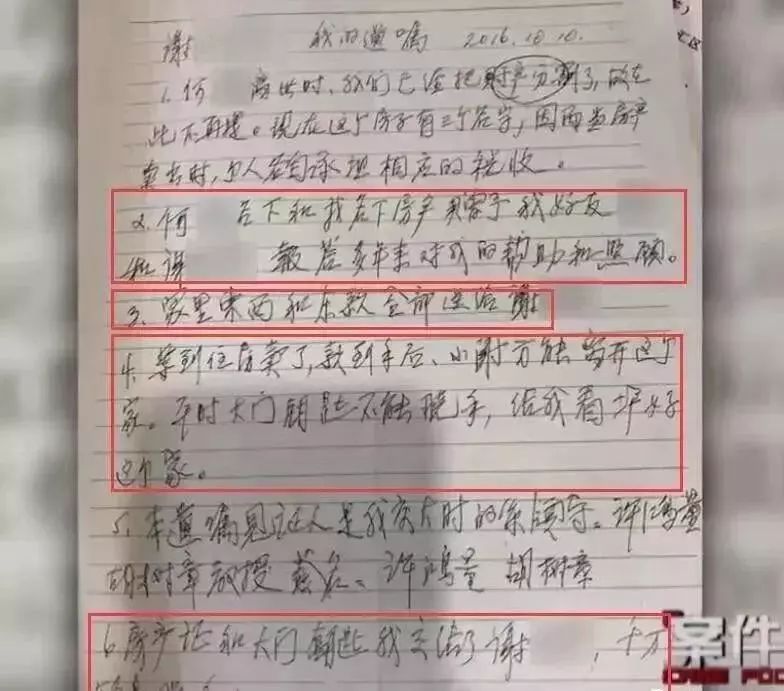 谢 我的遗嘱 2016.10.10.
1.何 离世时,我们已经把财产分割了,故在
此不再提。现在这个房子有三个名字,因而当房产
卖去时,个人各自承担相应的税收。
2.何 名下和我名下房产赠予我好友
和谢 报答多年来对我的帮助和照顾。
3、家里东西和存款全部送给谢
4.等到住房卖了,款到手后、小谢方能离开这个
家。平时大门钥匙不能脱手,给我看好
这个家。
5、本遗嘱见证人是我交大时的 、许鸿量
胡树章教授签名、许鸿量 胡树章
6.房产证和大门钥匙我交给了谢 ,千万
案件